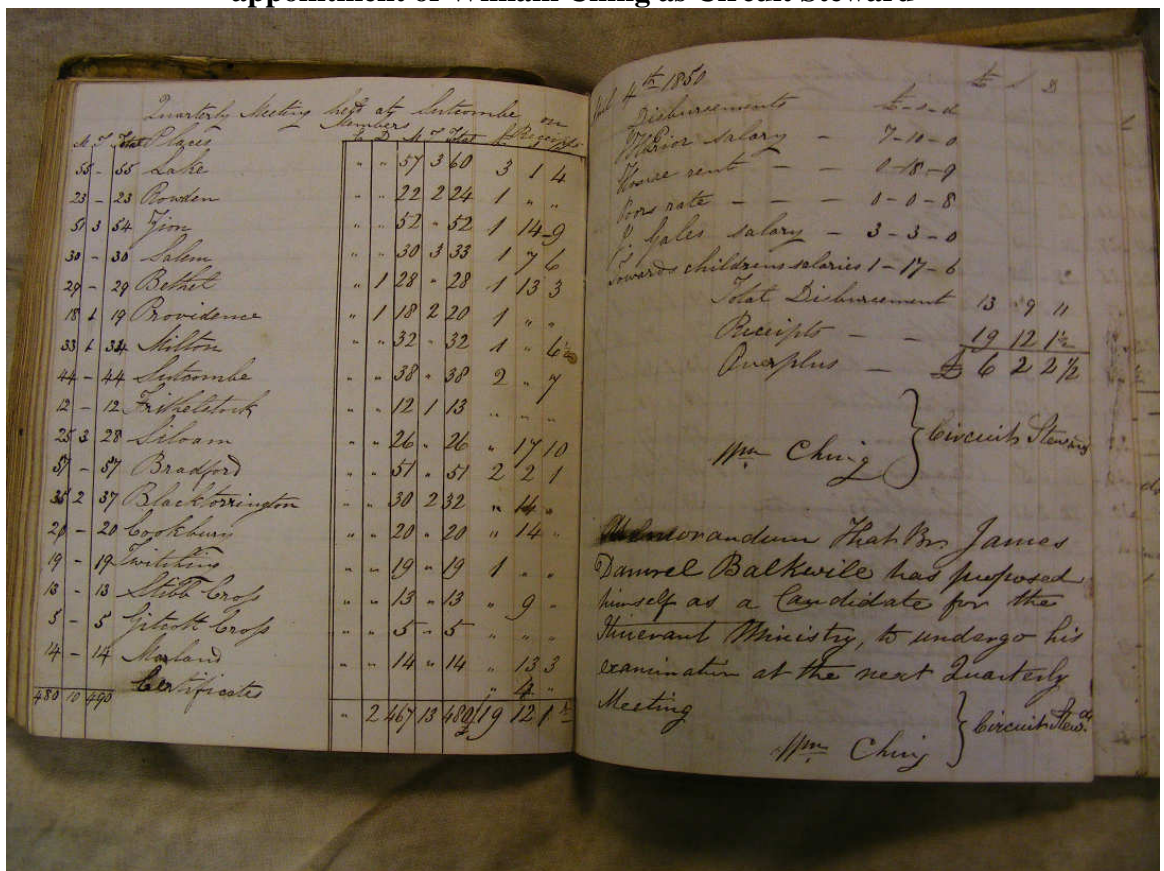 appointment of William Ching as Circuit Steward
Quarterly Meeting held at Sutcombe on
Members Receipts
M T Total Places E D M T Total £
55 - 55 Lake " " 57 3 60 3 1 4
23 - 23 Rowden " " 22 2 24 1 " "
51 3 54 Zion " " 52 " 52 1 14 - 9
30 - 30 Salem " " 30 3 33 1 7 6
29 - 29 Bethel " 1 28 " 28 1 13 3
18 1 19 Providence " 1 18 2 20 1 " "
33 1 34 Milton " " 32 " 32 1 " 6½
44 - 44 Sutcombe " " 38 " 38 2 " 7
12 - 12 Frithelstock " " 12 1 13 " " "
25 3 28 Siloam " " 26 " 26 " 17 10
57 - 57 Bradford " " 51 " 51 2 2 1
35 2 37 Blacktorrington " " 30 2 32 " 14 "
20 - 20 Cookbury " " 20 " 20 " 14 "
19 - 19 Twitching " " 19 " 19 1 " "
13 - 13 Stibb Cross " " 13 " 13 " 9 "
5 - 5 Gitcott Cross " " 5 " 5 " " "
14 - 14 Marland " " 14 " 14 " 13 3
Certificates " 4 "
480 10 490 " 2 467 13 480 £19 12 1½
4th 1850 £ s D
Disbursements £ - s - d
salary - 7-10-0
House rent - - 0-18-9
Poors rate - - - 0-0-8
J. Gales salary - 3-3-0
Towards childrens salaries 1-17-6
Total Disbursement 13 9 11
Receipts - - 19 12 1½
Overplus - £ 6 2 2½
Wm Ching } Circuit Steward
Memorandum That Br. James
Damrel Balkwill has proposed
himself as a Candidate for the
Itinerant Ministry, to undergo his
examination at the next Quarterly
Meeting
Wm Ching } Circuit Stewd